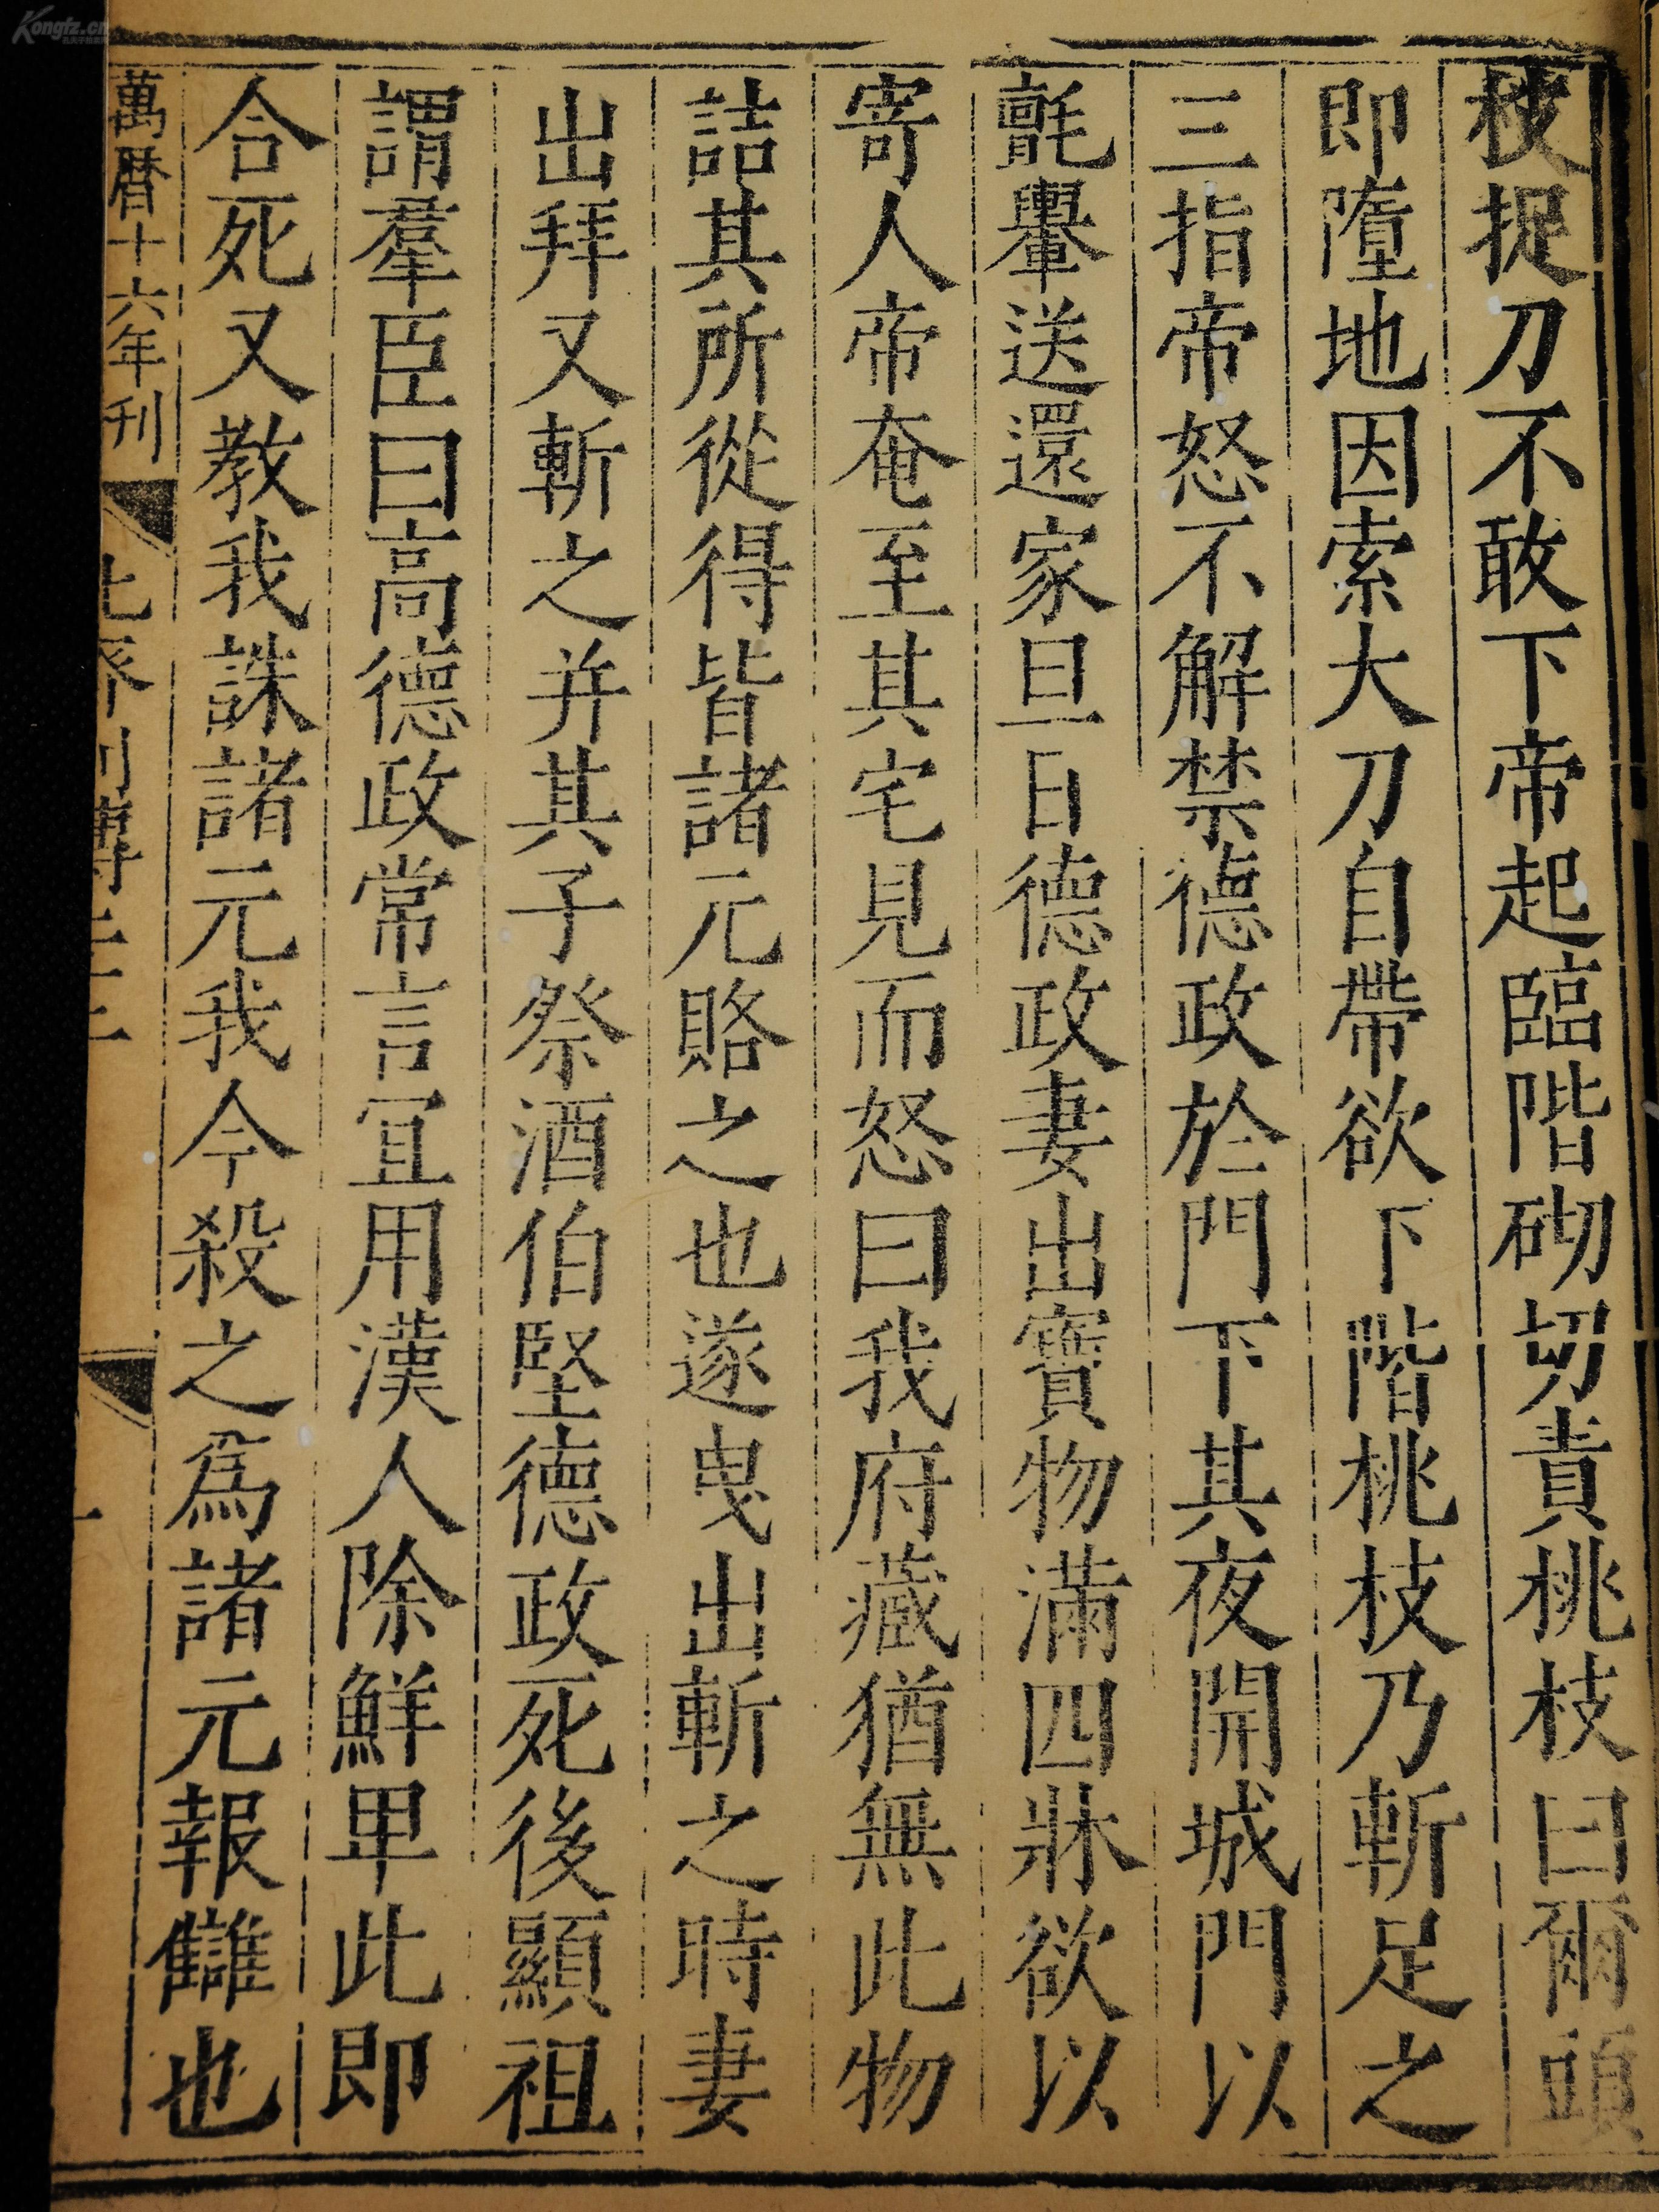 枝捉刀不敢下帝起臨階砌切責桃枝曰爾頭
即墮地因索大刀自帶欲下階桃枝乃斬足之
三指帝怒不解禁德政於門下其夜開城門以
氈轝送還家旦日德政妻出寶物滿四牀欲以
寄人帝奄至其宅見而怒曰我府藏猶無此物
詰其所從得皆諸元賂之也遂曳出斬之時妻
出拜又斬之并其子祭酒伯堅德政死後顯祖
謂羣臣曰高德政常言宜用漢人除鮮卑此即
合死又教我誅諸元我今殺之爲諸元報讎也
萬曆十六年刊
Kongfz.cn